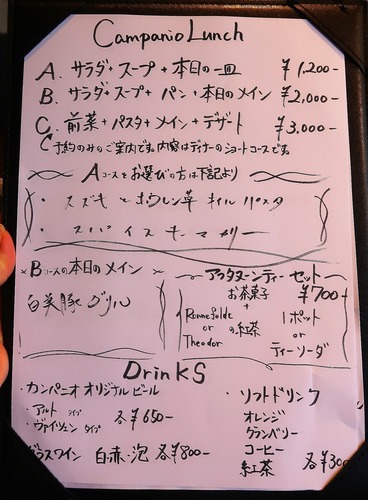 Campanio Lunch
A. サラダ+スープ+本日の一皿 ¥1,200-
B. サラダ+スープ+パン+本日のメイン ¥2,000-
C. 前菜+パスタ+メイン+デザート ¥3,000-
予約のみのご案内です。内容はディナーのショートコースです。
Aコースをお選びの方は下記より
・スズキとホウレン草 オイルパスタ
・スパイスキーマカリー
Bコースの本日のメイン
白美豚グリル
アフタヌーンティーセット
お茶菓子 ¥700-
+
Ronnefeldt
or の紅茶
Theodor
1ポット
or
ティーソーダ
Drinks
・カンパニオオリジナルビール
・アルトタイプ
・ヴァイツェンタイプ
各¥650-
グラスワイン 白・赤・泡 各¥800-
・ソフトドリンク
オレンジ
クランベリー
コーヒー
紅茶 各¥300